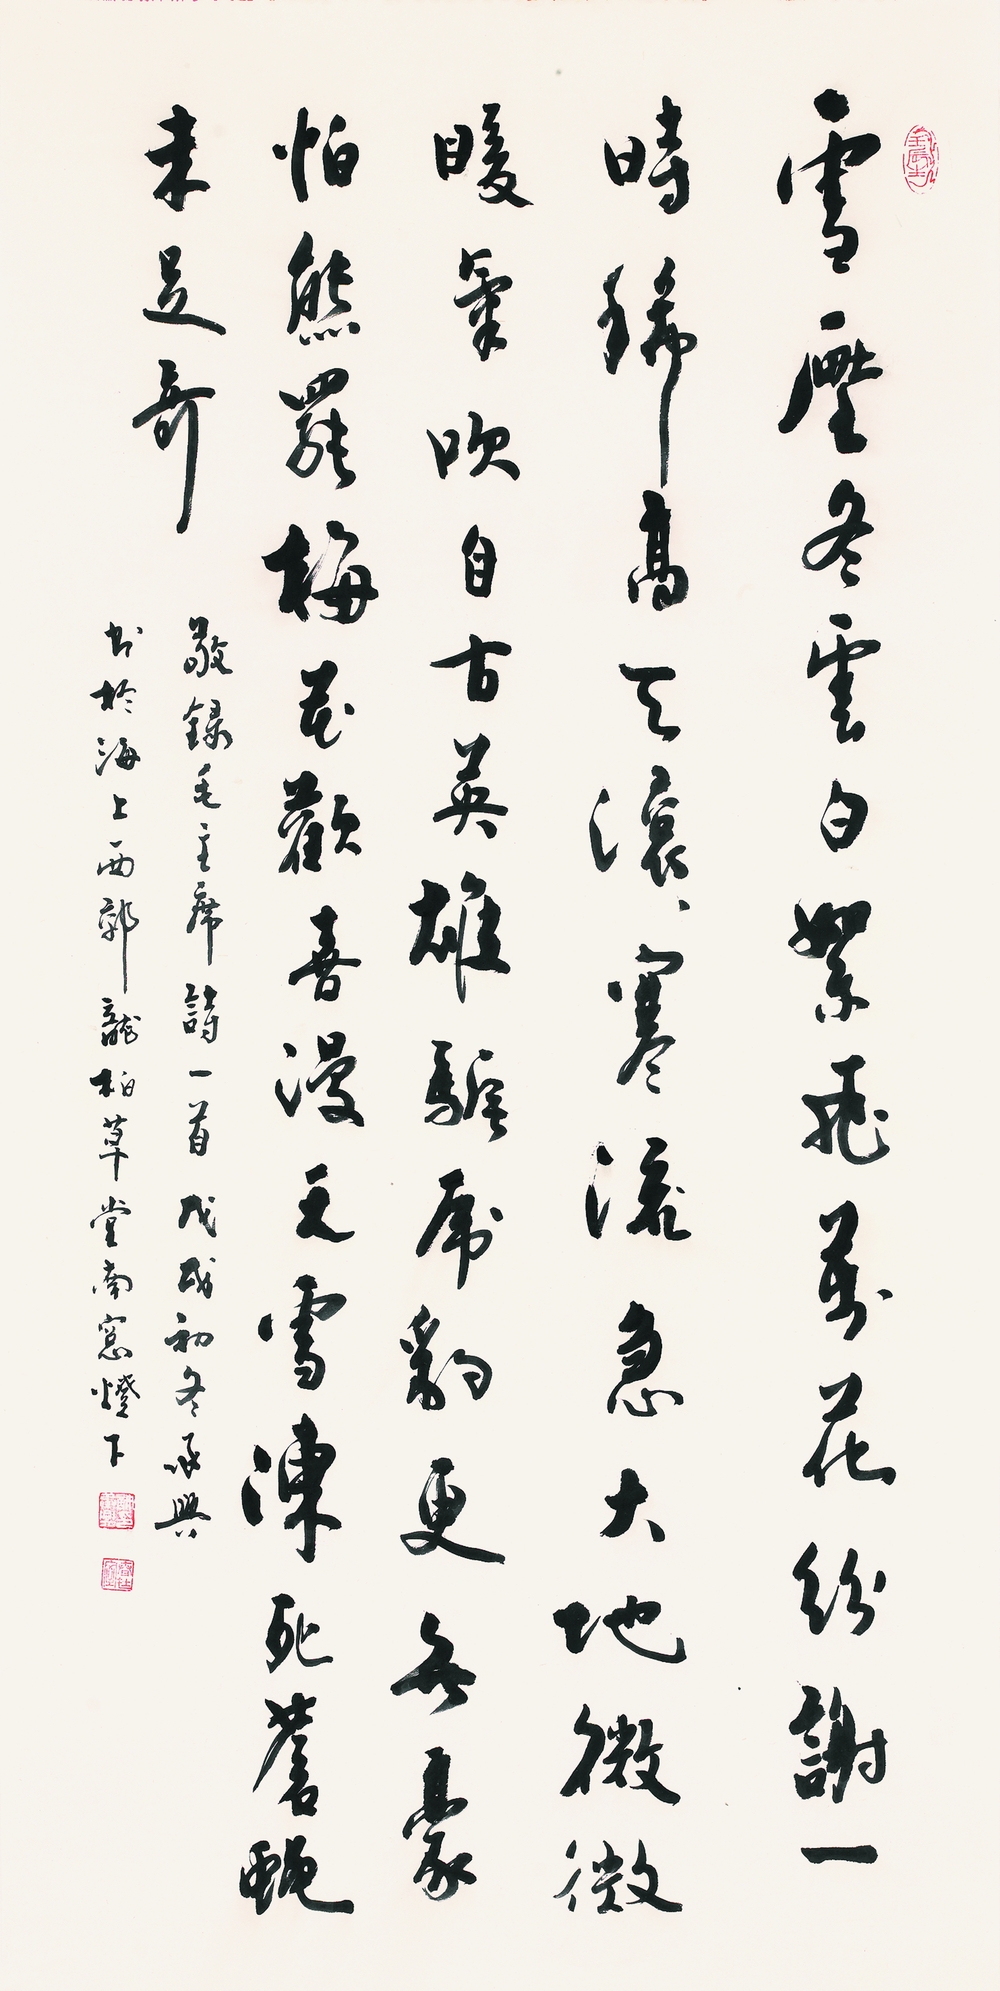 雪壓冬雲白絮飛萬花紛謝一
時稀高天滾、寒流急大地微微
暖氣吹自古英雄驅虎豹更無豪
怕熊羆梅花歡喜漫天雪凍死蒼蠅
未足奇
敬錄毛主席詩一首戊戌初冬承興
书於海上西郭龍柏草堂南窓燈下